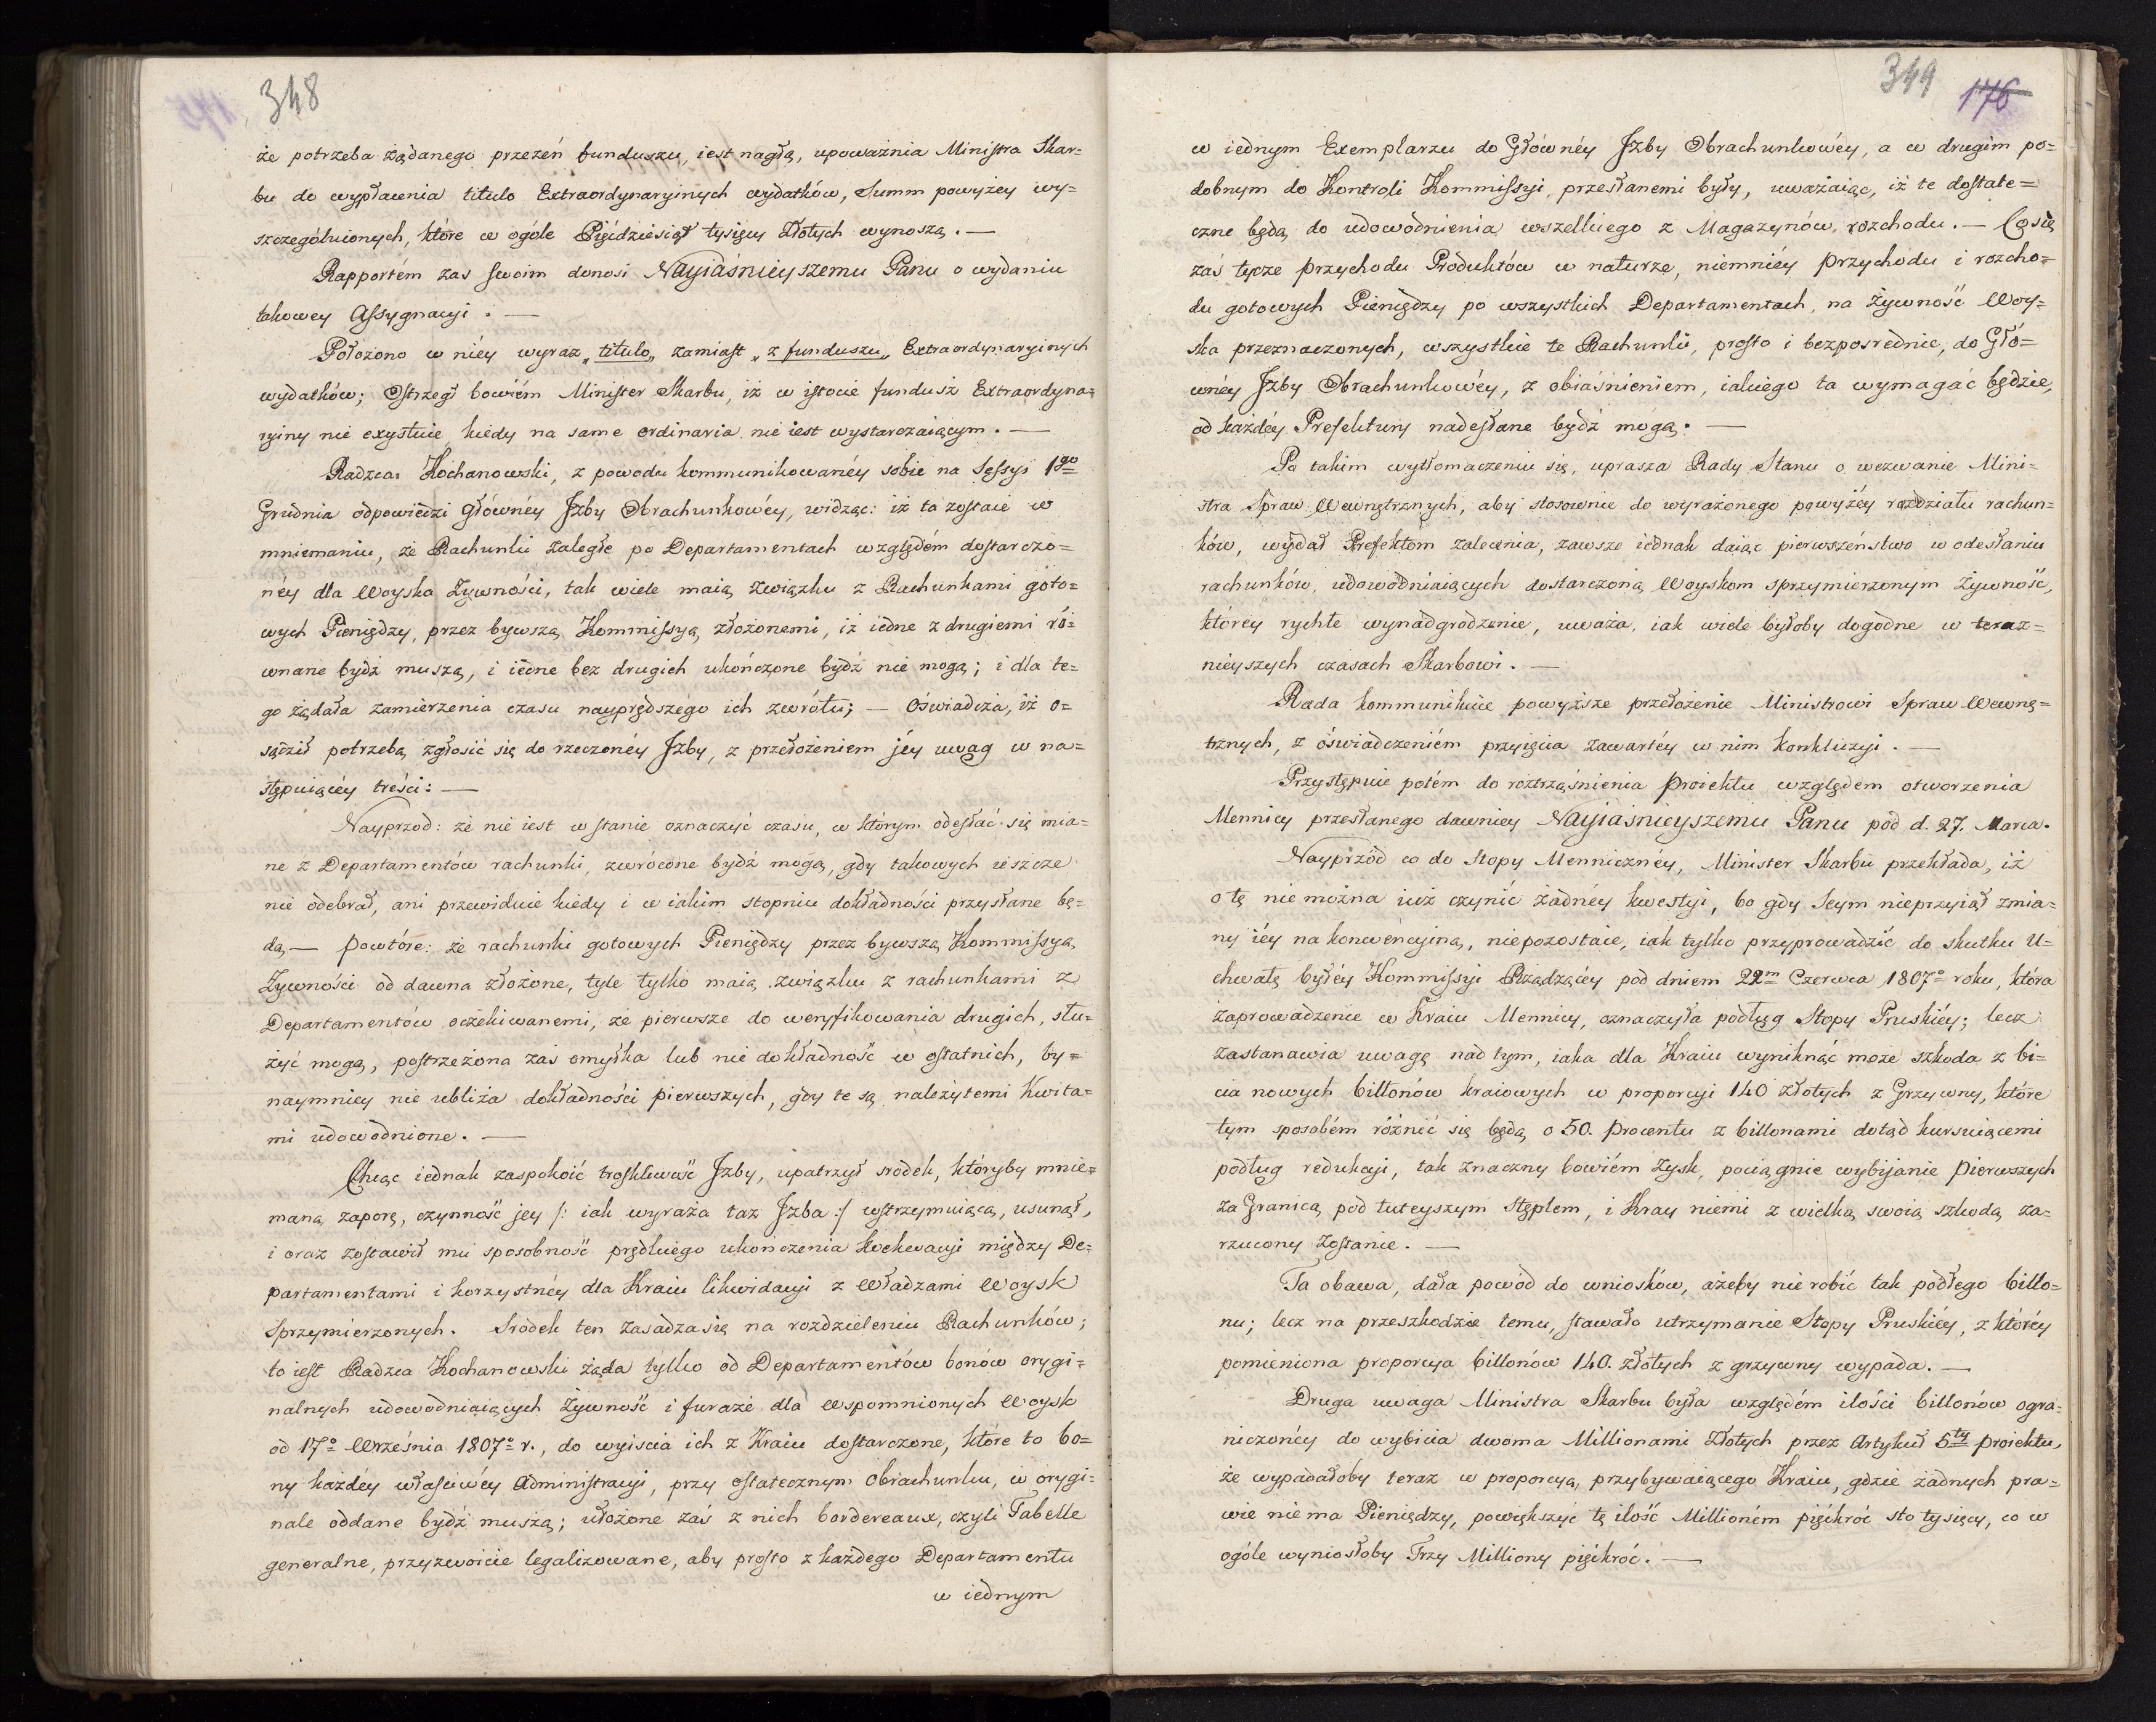 348
że potrzeba żądanego przezeń funduszu, iest nagłą, upoważnia Ministra Skar=
bu do wypłacenia titulo Extraordynaryinych wydatków, Summ powyżey wy=
szczególnionych, które w ogóle Pięćdziesiąt tysięcy Złotych wynoszą. —
Rapportém zas swoim donosi Nayiaśnieyszemu Panu o wydaniu
takowey Assygnacyi. —
Położono w niéy wyraz „titulo„ zamiast „z funduszu„ Extraordynaryinych
wydatków; Ostrzegł bowiém Minister Skarbu, iż w istocie fundusz Extraordyna=
ryiny nie exystuie, kiedy na same ordinaria nie iest wystarczaiącym. —
Radzca Kochanowski, z powodu kommunikowanéy sobie na Sessyi 1go
Grudnia odpowiedzi Głównéy Jzby Obrachunkowéy, widząc: iż ta zostaie w
mniemaniu, że Rachunki zaległe po Departamentach względém dostarczo=
néy dla Woyska Żywności, tak wiele maią związku z Rachunkami goto=
wych Pieniędzy, przez bywszą Kommissyą, złożonemi, iż iedne z drugiemi ró=
wnane bydź muszą, i iedne bez drugich ukończone bydź nie mogą; i dla te=
go żądała zamierzenia czasu nayprędszégo ich zwrótu; — Oświadcza, iż o=
sądził potrzebą zgłosić się do rzeczonéy Jzby, z przełożeniem jéy uwag w na=
stępuiącéy treści: —
Nayprzod: że nie iest w stanie oznaczyć czasu, w którym odesłać się mia=
ne z Departamentów rachunki, zwrócone bydź mogą, gdy takowych ieszcze
nie odebrał, ani przewiduie kiedy i w iakim stopniu dokładności przysłane bę=
dą, — powtóre: że rachunki gotowych Pieniędzy przez bywszą Kommissyą
Żywności od dawna złożone, tyle tylko maią związku z rachunkami z
Departamentów oczekiwanemi, że pierwsze do weryfikowania drugich, słu=
żyć mogą, postrzeżona zaś omyłka lub nie dokładność w ostatnich, by=
naymniey nie ubliża dokładności pierwszych, gdy te są należytemi Kwita=
mi udowodnione. —
Chcąc iednak zaspokoić troskliwość Jzby, upatrzył srodek, któryby mnie=
maną zaporę, czynność jey /: iak wyraża taz Jzba :/ wstrzymuiącą, usunął,
i oraz zostawił mu sposobność prędkiego ukończenia Exekwacyi między De=
partamentami i korzystnéy dla Kraiu likwidacyi z Władzami Woysk
Sprzymierzonych. Srodek ten zasadza się na rozdzieleniu Rachunków;
to iest Radzca Kochanowski żąda tylko od Departamentów bonów orygi=
nalnych udowodniaiących Żywność i furaże dla Wspomnionych Woysk
od 17o Września 1807o r., do wyiscia ich z Kraiu dostarczone, które to bo=
ny każdéy właściwéy Administracyi, przy ostatecznym obrachunku, w orygi=
nale oddane bydź muszą; ułożone zaś z nich bordereaux, czyli Tabelle
generalne, przyzwoicie legalizowane, aby prosto z każdego Departamentu
w iednym
349
176
w iednym Exemplarzu do Głównéy Jzby Obrachunkowéy, a w drugim po=
dobnym do Kontroli Kommissyi przesłanemi były, uważaiąc, iż te dostate=
czne będą do udowodnienia wszelkiego z Magazynów, rozchodu. — Co się
zaś tycze przychodu Produktów w naturze, niemniéy przychodu i rozcho=
du gotowych Pieniędzy po wszystkich Departamentach, na Żywność Woy=
ska przeznaczonych, wszystkie te Rachunki, prosto i bezpośrednie, do Głó=
wnéy Jzby Obrachunkowéy, z obiaśnieniem, iakiego ta wymagać będzie,
od każdéy Prefektury nadesłane bydź mogą. —
Po takim wytłomaczeniu się, uprasza Rady Stanu o wezwanie Mini=
stra Spraw Wewnętrznych, aby stosownie do wyrażonego powyżéy rozdziału rachun=
ków, wydał Prefektom zalecenia, zawsze iednak daiąc pierwszeństwo w odesłaniu
rachunków, udowodniaiących dostarczoną Woyskom sprzymierzonym Żywność,
którey rychłe wynadgrodzenie, uważa, iak wiele byłoby dogodne w teraz=
nieyszych czasach Skarbowi. —
Rada kommunikuie powyższe przełożenie Ministrowi Spraw Wewnę=
trznych, z oświadczeniém przyięcia zawartéy w nim konkluzyi. —
Przystępuie potém do roztrząśnienia proiektu względem otworzenia
Mennicy przesłanego dawniey Nayiaśnieyszemu Panu pod d. 27. Marca.
Nayprzód co do Stopy Menniczney, Minister Skarbu przekłada, iż
o tę nie można iuż czynić żadnéy kwestyi, bo gdy Seym nieprzyiął zmia=
ny iéy na konwencyiną, niepozostaie, iak tylko przyprowadzić do skutku U=
chwałę byłéy Kommissyi Rządzącéy pod dniem 22m Czerwca 1807o roku, która
zaprowadzenie w Kraiu Mennicy, oznaczyła podług Stopy Pruskiéy; lecz
zastanawia uwagę nad tym, iaka dla Kraiu wyniknąć może szkoda z bi=
cia nowych billonów kraiowych w proporcyi 140 złotych z Grzywny, które
tym sposobém różnić się będą o 50. procentu z billonami dotąd kursuiącemi
podług redukcyi, tak znaczny bowiém zysk, pociągnie wybijanie pierwszych
za Granicą pod tuteyszym Stęplem, i Kray niemi z wielką swoią szkodą za=
rzucony zostanie. —
Ta obawa, dała powód do wniosków, ażeby nie robić tak podłego billo=
nu; lecz na przeszkodzie temu, stawało utrzymanie Stopy Pruskiéy, z któréy
pomieniona proporcya billonów 140. złotych z grzywny wypada. —
Druga uwaga Ministra Skarbu była względém ilości billonów ogra=
niczonéy do wybicia dwoma Millionami Złotych przez Artykuł 5ty proiektu,
że wypadałoby teraz w proporcyą, przybywaiącego Kraiu, gdzie żadnych pra=
wie nie ma Pieniędzy, powiększyć tę ilość Millioném pięćkroć sto tysięcy, co w
ogóle wyniosłoby Trzy Milliony pięćkroć. —